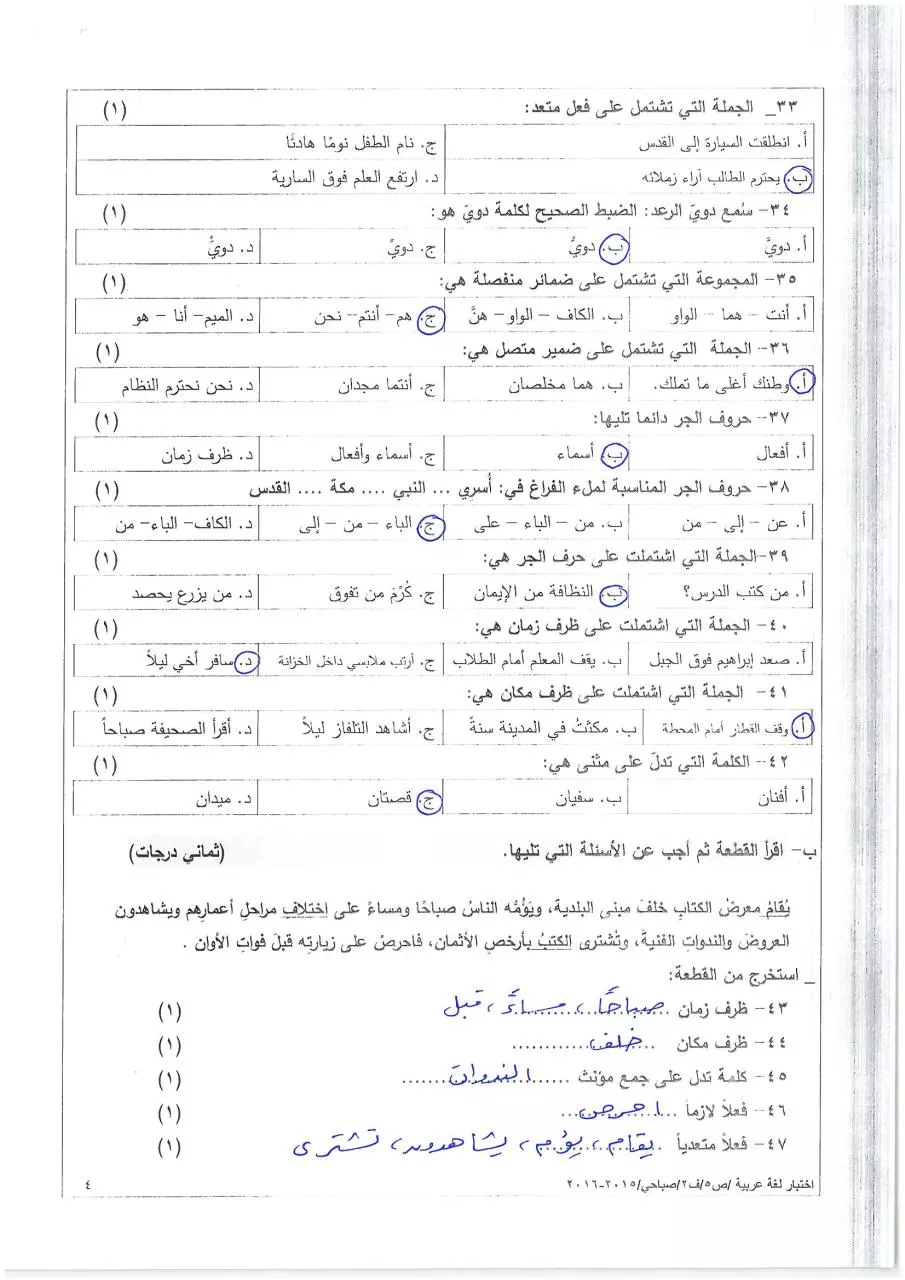 ٣٣_ الجملة التي تشتمل على فعل متعد: (١)
أ. انطلقت السيارة إلى القدس ج. نام الطفل نومًا هادئًا
ب. يحترم الطالب آراء زملائه د. ارتفع العلم فوق السارية
٣٤- سُمع دويّ الرعد: الضبط الصحيح لكلمة دويّ هو: (١)
أ. دويَّ ب. دويُّ ج. دويِّ د. دويٌّ
٣٥- المجموعة التي تشتمل على ضمائر منفصلة هي: (١)
أ. أنت - هما - الواو ب. الكاف - الواو- هنَّ ج. هم- أنتم- نحن د. الميم- أنا - هو
٣٦- الجملة التي تشتمل على ضمير متصل هي: (١)
أ. وطنك أغلى ما تملك. ب. هما مخلصان ج. أنتما مجدان د. نحن نحترم النظام
٣٧- حروف الجر دائما تليها: (١)
أ. أفعال ب. أسماء ج. أسماء وأفعال د. ظرف زمان
٣٨- حروف الجر المناسبة لملء الفراغ في: أُسري ... النبي .... مكة .... القدس (١)
أ. عن - إلى - من ب. من - الباء - على ج. الباء - من - إلى د. الكاف- الباء- من
٣٩-الجملة التي اشتملت على حرف الجر هي: (١)
أ. من كتب الدرس؟ ب. النظافة من الإيمان ج. كُرِّمَ من تفوق د. من يزرع يحصد
٤٠- الجملة التي اشتملت على ظرف زمان هي: (١)
أ. صعد إبراهيم فوق الجبل ب. يقف المعلم أمام الطلاب ج. أرتب ملابسي داخل الخزانة د. سافر أخي ليلاً
٤١- الجملة التي اشتملت على ظرف مكان هي: (١)
أ. وقف القطار أمام المحطة ب. مكثتُ في المدينة سنةً ج. أشاهد التلفاز ليلاً د. أقرأ الصحيفة صباحاً
٤٢- الكلمة التي تدلّ على مثنى هي: (١)
أ. أفنان ب. سفيان ج. قصتان د. ميدان
ب- اقرأ القطعة ثم أجب عن الأسئلة التي تليها. (ثماني درجات)
يُقامُ معرضُ الكتابِ خلفَ مبنى البلدية، ويَؤمُّه الناسُ صباحًا ومساءً على اختلافِ مراحلِ أعمارِهم ويشاهدون
العروضَ والندواتِ الفنيةَ، وتُشترى الكتبُ بأرخصِ الأثمان، فاحرصْ على زيارتِه قبلَ فواتِ الأوان .
_ استخرج من القطعة:
٤٣- ظرف زمان صباحًا، مساءً، قبل (١)
٤٤- ظرف مكان ...خلف............ (١)
٤٥- كلمة تدل على جمع مؤنث ......الندوات....... (١)
٤٦- فعلاً لازماً ...احرص... (١)
٤٧- فعلاً متعدياً يقام، يؤم، يشاهدون، تشترى (١)
اختبار لغة عربية /ص٥/ف٢/صباحي/٢٠١٥-٢٠١٦ ٤